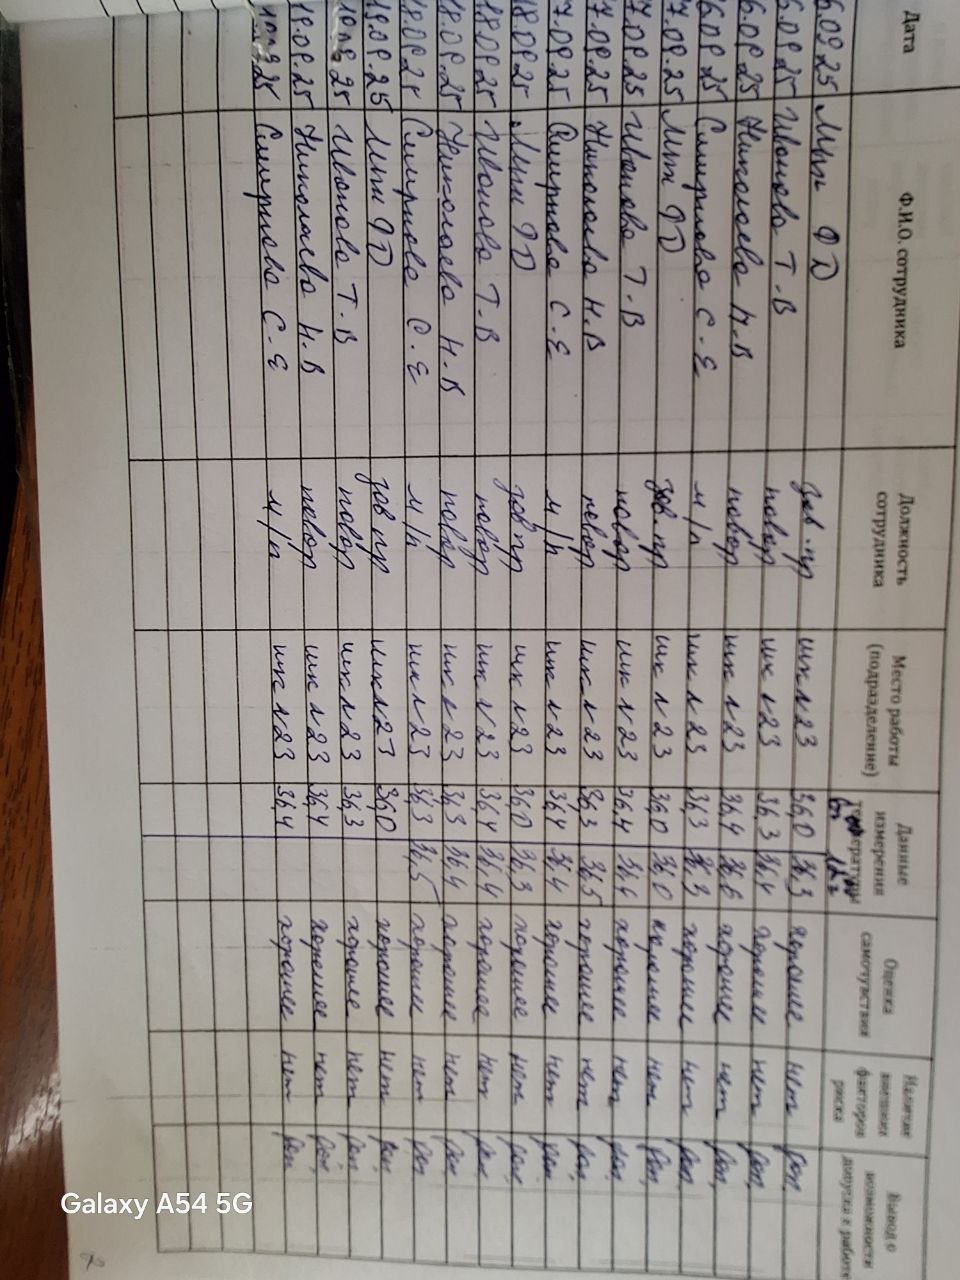 Дата Ф.И.О. сотрудника Должность сотрудника Место работы (подразделение) Данные измерения температуры Оценка самочувствия Наличие внешних факторов риска Вывод о возможности допуска к работе
6.09 25 Мун Ф D зав.пр шк N 23 36,0 36,3 хорошее нет доп
6.09 25 Иванова Т.В повар шк N 23 36,3 36,4 хорошее нет доп.
6.09 25 Николаева Н.В повар шк N 23 36,4 36,6 хорошее нет доп.
6.09 25 Смирнова С.Е м/п шк N 23 36,3 36,3 хорошее нет доп
7.09.25 ФD зав.пр шк N 23 36,0 36,0 хорошее нет доп.
7.09 25 Иванова Т.В повар шк N 23 36,4 36,4 хорошее нет доп.
7.09.25 Николаева Н.В повар шк N 23 36,3 36,5 хорошее нет доп.
7.09.25 Смирнова С.Е м/п шк N 23 36,4 36,4 хорошее нет доп
18.09 25 ФD зав пр шк N 23 36,0 36,3 хорошее нет доп.
18.09 25 Иванова Т.В повар шк N 23 36,4 36,4 хорошее нет доп.
18.09.25 Николаева Н.В повар шк N 23 36,3 36,4 хорошее нет доп.
18.09 25 Смирнова С.Е м/п шк N 23 36,3 36,5 хорошее нет доп
19.09.25 ФD зав пр шк N 23 36,0 хорошее нет доп.
19.09 25 Иванова Т.В повар шк N 23 36,3 хорошее нет доп.
19.09.25 Николаева Н.В повар шк N 23 36,4 хорошее нет доп.
19.09.25 Смирнова С.Е м/п шк N 23 36,4 хорошее нет доп
Galaxy A54 5G